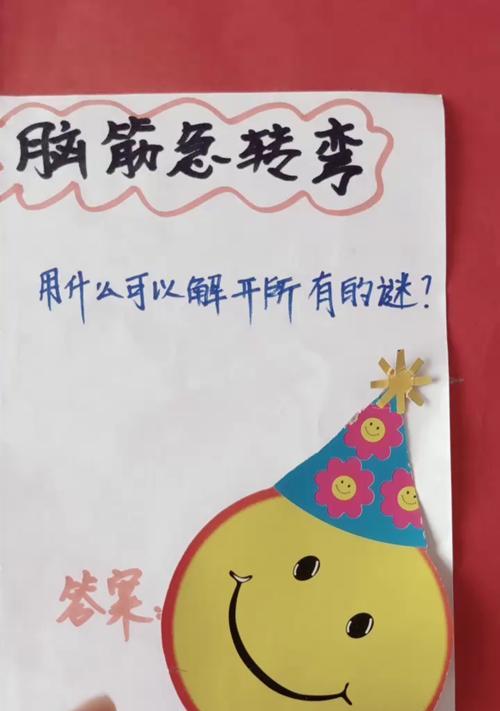 脑筋急转弯
用什么可以解开所有的谜？
答案：